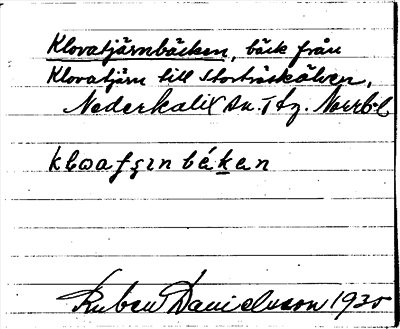 Klovatjärnbäcken, bäck från
Klovatjärn till Storträskälven,
Nederkalix sn. Tg. Norrb.l
klωafşınbéken
Ruben Danielsson 1935